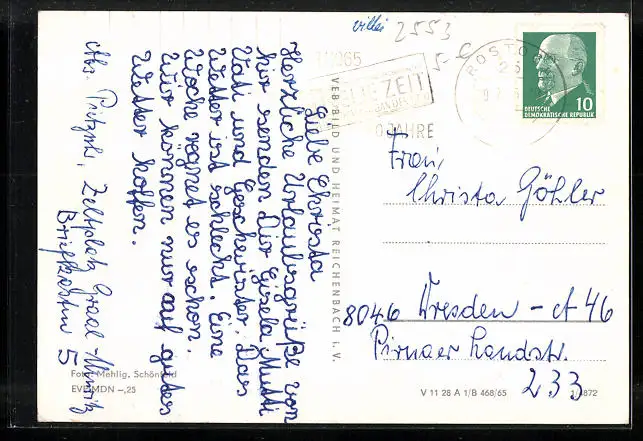 villa
2553
5-
ROSTO
ZEIT
JAHRE
DEUTSCHE
DEMOKRATISCHE REPUBLIK
10
Liebe Christa
Herzliche Urlaubsgrüße von
hier senden Dir Gisela, Mutti
Vati und Geschwister. Das
Wetter ist schlecht. Eine
Woche regnet es schon.
Wir können nur auf gutes
Wetter hoffen.
Abs. Pritzsch, Zeltplatz Graal-Müritz
Briefkasten 5
VEB BILD UND HEIMAT REICHENBACH i. V.
Frau
Christa Göhler
8046 Dresden - A 46
Pirnaer Landstr.
233
Foto: Mehlig, Schönfeld
EVP MDN -,25
V 11 28 A 1/B 468/65
1/4872